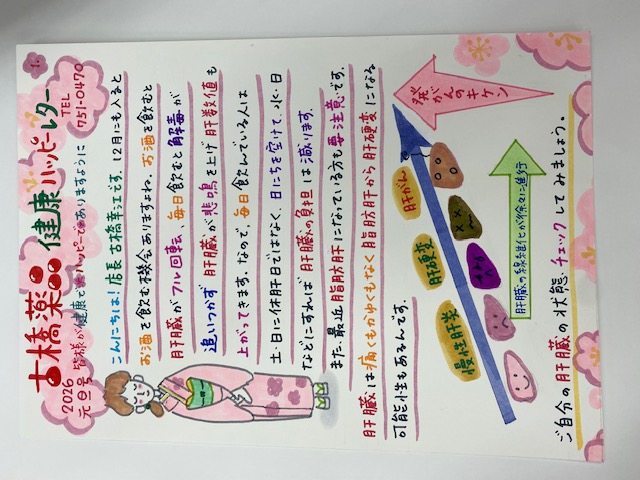 古橋薬品 健康ハッピーレター
TEL
751-0470
2026
元旦号
皆様が健康でハッピーでありますように
こんにちは!店長古橋幸江です。12月にも入ると
お酒を飲む機会ありますよね。お酒を飲むと
肝臓がフル回転、毎日飲むと解毒が
追いつかず肝臓が悲鳴を上げ肝数値も
上がってきます。なので、毎日飲んでいる人は
土・日に休肝日ではなく、日にちを空けて、水・日
などにすれば肝臓の負担は減ります。
また、最近脂肪肝になっている方も要注意です。
肝臓は痛くもかゆくもなく脂肪肝から肝硬変になる
可能性もあるんです。
発がんのキケン
肝がん
肝硬変
慢性肝炎
肝臓の線維化が徐々に進行
ご自分の肝臓の状態チェックしてみましょう。